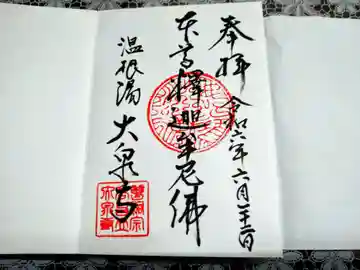 奉拝
令和六年六月二十二日
本尊釋迦牟尼佛
温根湯
大泉寺